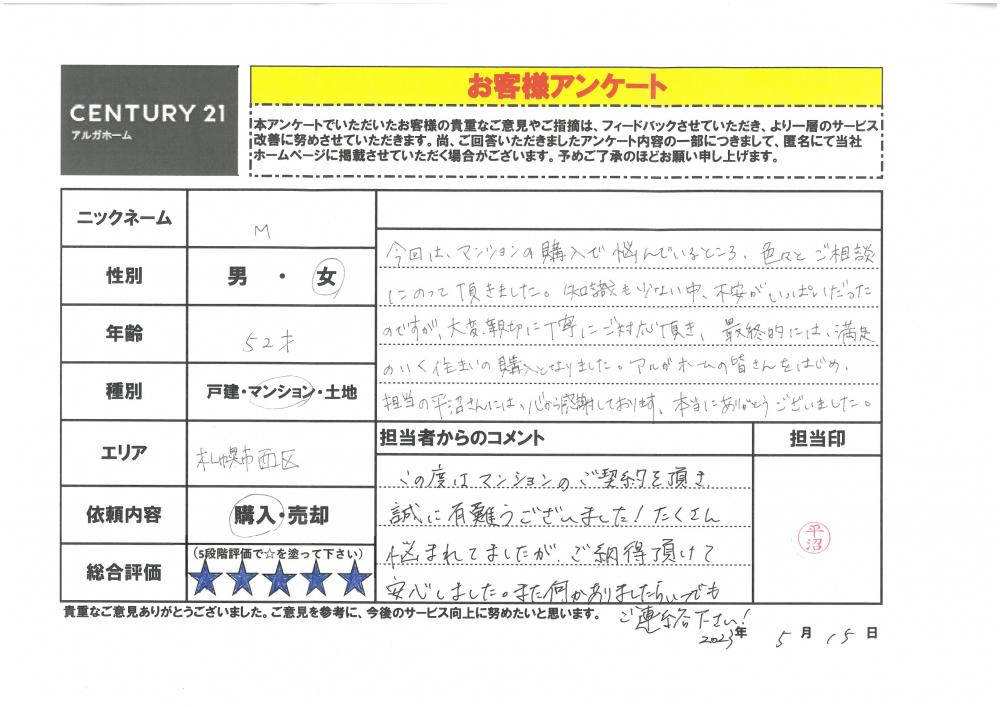 CENTURY 21
アルガホーム
お客様アンケート
本アンケートでいただいたお客様の貴重なご意見やご指摘は、フィードバックさせていただき、より一層のサービス
改善に努めさせていただきます。尚、ご回答いただきましたアンケート内容の一部につきまして、匿名にて当社
ホームページに掲載させていただく場合がございます。予めご了承のほどお願い申し上げます。
ニックネーム
M
性別
男 ・ 女
年齢
52才
種別
戸建・マンション・土地
エリア
札幌市西区
依頼内容
購入・売却
総合評価
(5段階評価で☆を塗って下さい)
★★★★★
今回は、マンションの購入で悩んでいるところ、色々とご相談
にのって頂きました。知識も少ない中、不安がいっぱいだった
のですが、大変親切に丁寧にご対応頂き、最終的には、満足
のいく住まいの購入となりました。アルガホームの皆さんをはじめ、
担当の平沼さんには、心から感謝しております。本当にありがとうございました。
担当者からのコメント
担当印
この度はマンションのご契約を頂き
誠に有難うございました!たくさん
悩まれてましたが、ご納得頂けて
安心しました。また何かありましたらいつでも
ご連絡下さい!
平沼
貴重なご意見ありがとうございました。ご意見を参考に、今後のサービス向上に努めたいと思います。
2023年 5月 15日